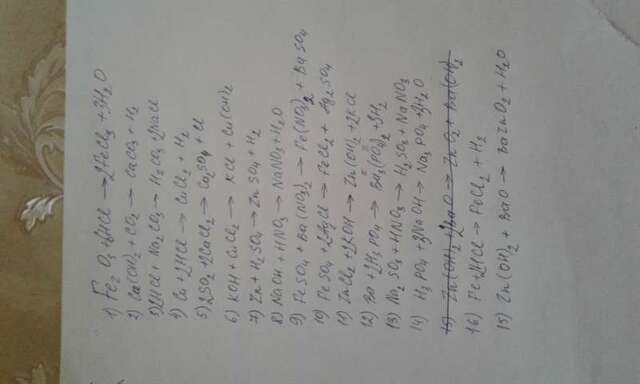 1) Fe2O3 + 6HCl → 2FeCl3 + 3H2O
2) Ca(OH)2 + CO2 → CaCO3 + H2
3) 2HCl + Na2CO3 → H2CO3 + 2NaCl
4) Cu + 2HCl → CuCl2 + H2
5) 2SO2 + 2CaCl2 → Ca2SO4 + Cl
6) KOH + CuCl2 → KCl + Cu(OH)2
7) Zn + H2SO4 → ZnSO4 + H2
8) NaOH + HNO3 → NaNO3 + H2O
9) FeSO4 + Ba(NO3)2 → Fe(NO3)2 + BaSO4
10) FeSO4 + 2AgCl → FeCl2 + Ag2SO4
11) ZnCl2 + 2KOH → Zn(OH)2 + 2KCl
12) Ba + 2H3PO4 → Ba3(PO4)2 + 3H2
13) Na2SO3 + HNO3 → H2SO3 + NaNO3
14) H3PO4 + 3NaOH → Na3PO4 + 3H2O
15) Zn(OH)2 + 2BaO → ZnO2 + Ba(OH)2
16) Fe + 2HCl → FeCl2 + H2
15) Zn(OH)2 + BaO → BaZnO2 + H2O